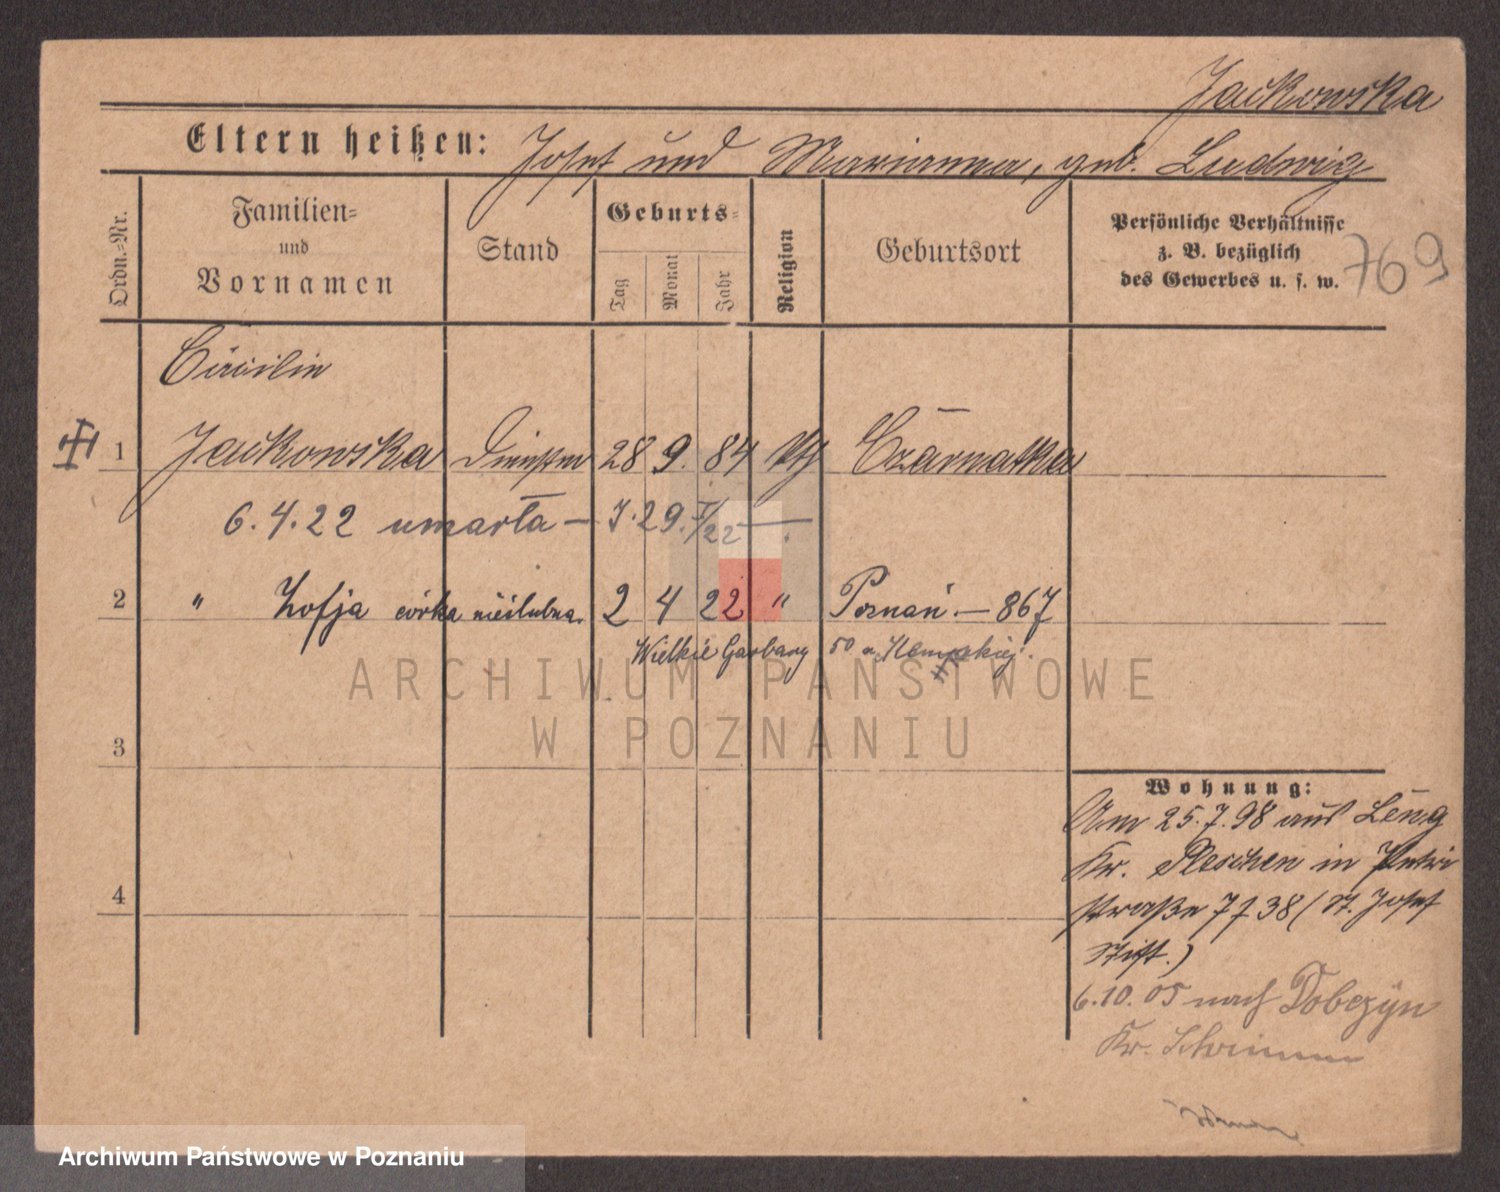 Jackowska
Eltern heißen: Josef und Marianna, geb. Ludwig
Ordn.-Nr.
Familien-
und
Vornamen
Stand
Geburts-
Tag
Monat
Jahr
Religion
Geburtsort
Persönliche Verhältnisse
z. B. bezüglich
des Gewerbes u. s. w.
769
Cäcilie
1 Jackowska 28 9. 84 kth Czarnotka
6. 4. 22 umarła — 29. /22 —.
2 " Zofja córka nieślubna. 2 4 22 " Poznań. — 867
Wielkie Garbary 50
3
4
Wohnung:
Am 25. 7. 98 aus Leng
Kr. Pleschen in Petri
straße 7 f 38 (St. Josef
Stift.)
6. 10. 05 nach Dobczyn
Kr. Schrimm
ARCHIWUM PAŃSTWOWE
W POZNANIU
Archiwum Państwowe w Poznaniu